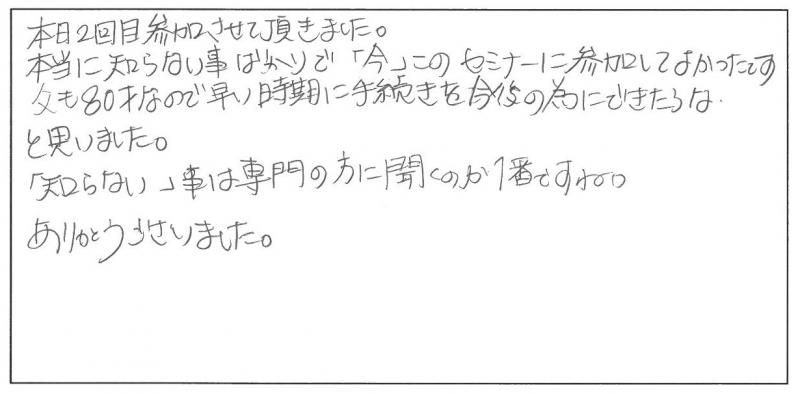 本日2回目参加させて頂きました。
本当に知らない事ばかりで「今」このセミナーに参加してよかったです
父も80才なので早い時期に手続きを今後の為にできたらな
と思いました。
「知らない」事は専門の方に聞くのが1番ですね。
ありがとうございました。